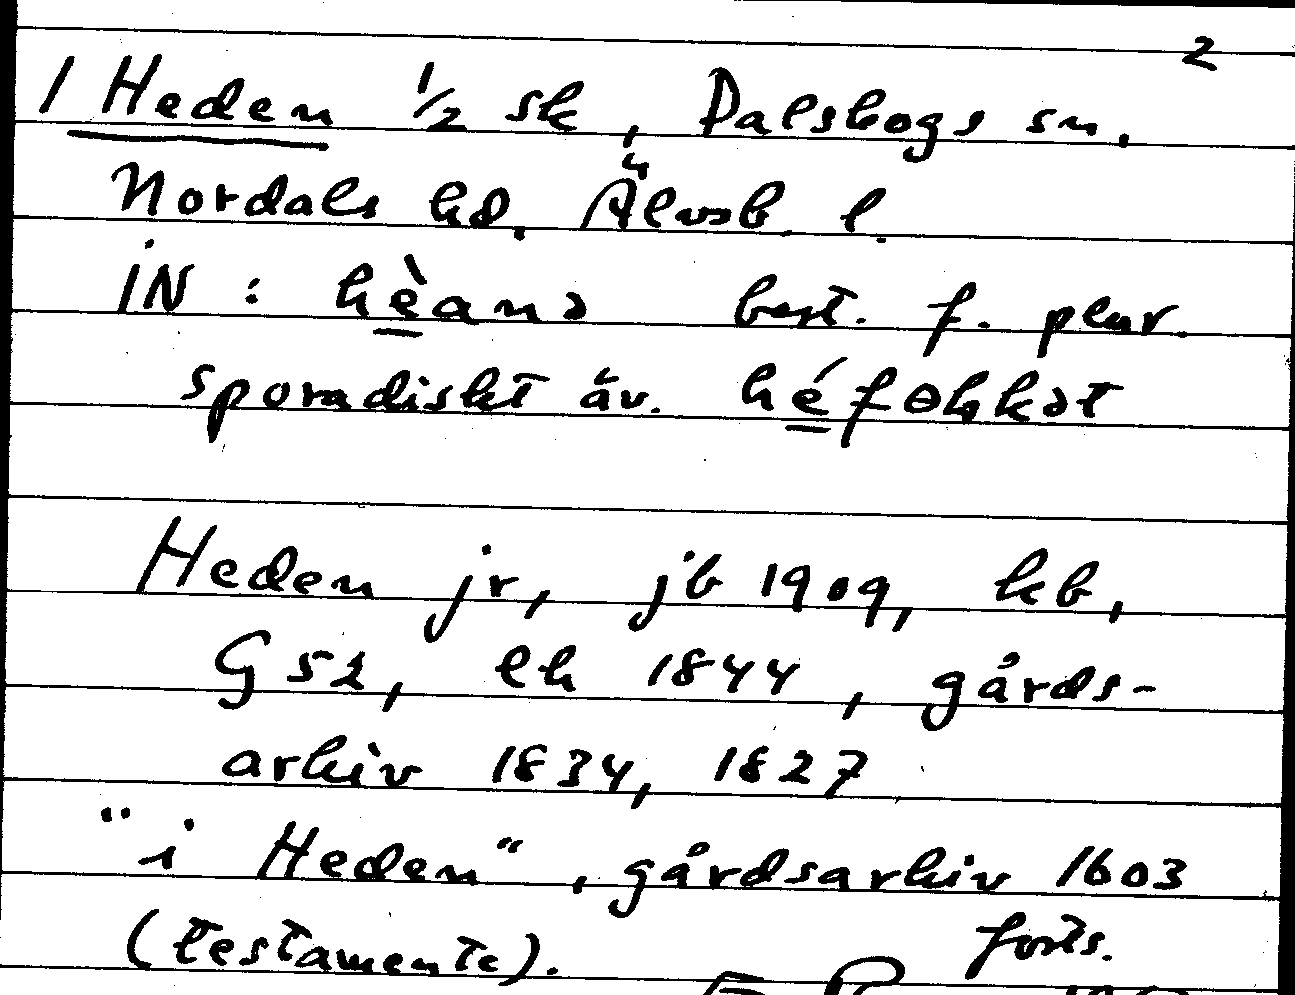 2
1 Heden 1/2 sk, Dalskogs sn.
Nordals hd. Älvsb. l.
IN: hèanə best. f. plur.
sporadiskt äv. héfɵhkət
Heden jr, jb 1909, kb,
G52, lk 1844, gårds-
arkiv 1834, 1827
"i Heden", gårdsarkiv 1603
(testamente). forts.